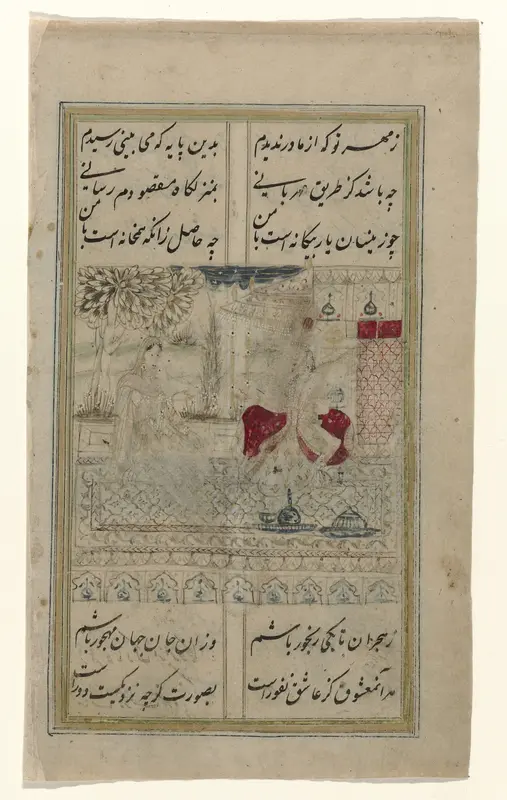 ز مهر تو که از مادر ندیدم بدین پایه که می بینی رسیدم
چه باشد کز طریق مهربانی بمنزلگاه مقصودم رسانی
چو زینسان یار بیگانه است با من چه حاصل زانکه همخانه است با من
ز هجران تا بکی رنجور باشم وزان جان جهان مهجور باشم
هر آنمعشوق کز عاشق نفوراست بصورت گرچه نزدیکست دوراست